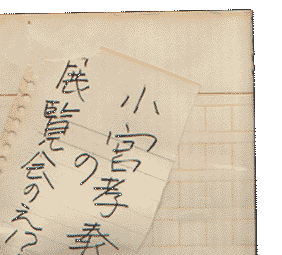 小宮孝泰
の
展覧会のえ